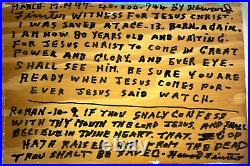 MARCH-19-1997. 40.000.766 BY HOWARD
FINSTER WITNESS FOR JESUS CHRIST
I WAS SAVED AT AGE-13. BORN-AGAIN.
I AM NOW 80 YEARS OLD AND WAITING
FOR JESUS CHRIST TO COME IN GREAT
POWER AND GLORY. AND EVERY EYE-
SHALL SEE HIM. BE SURE YOU ARE
READY WHEN JESUS COMES FOR-
EVER JESUS SAID WATCH.
ROMAN-10-9. IF THOU SHALL CONFESS
WITH THY MOUTH THE LORD JESUS, AND
BELIEVE IN THINE HEART THAT GOD
HATH RAISED FROM THE DEAD
THOU SHALT BE SAVED.